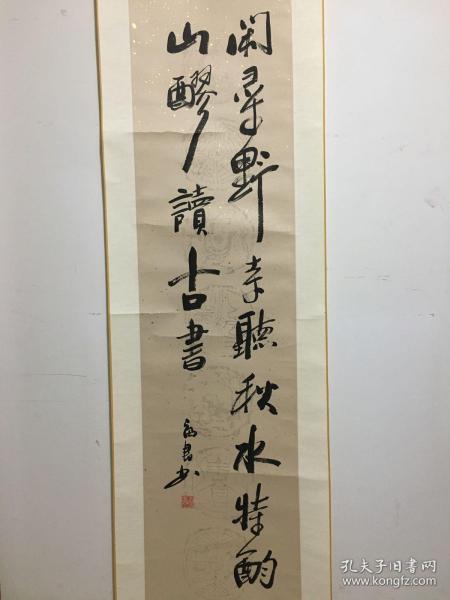 閑尋野寺聽秋水特酌
山醪讀古書
孔夫子旧书网
www.kongfz.com